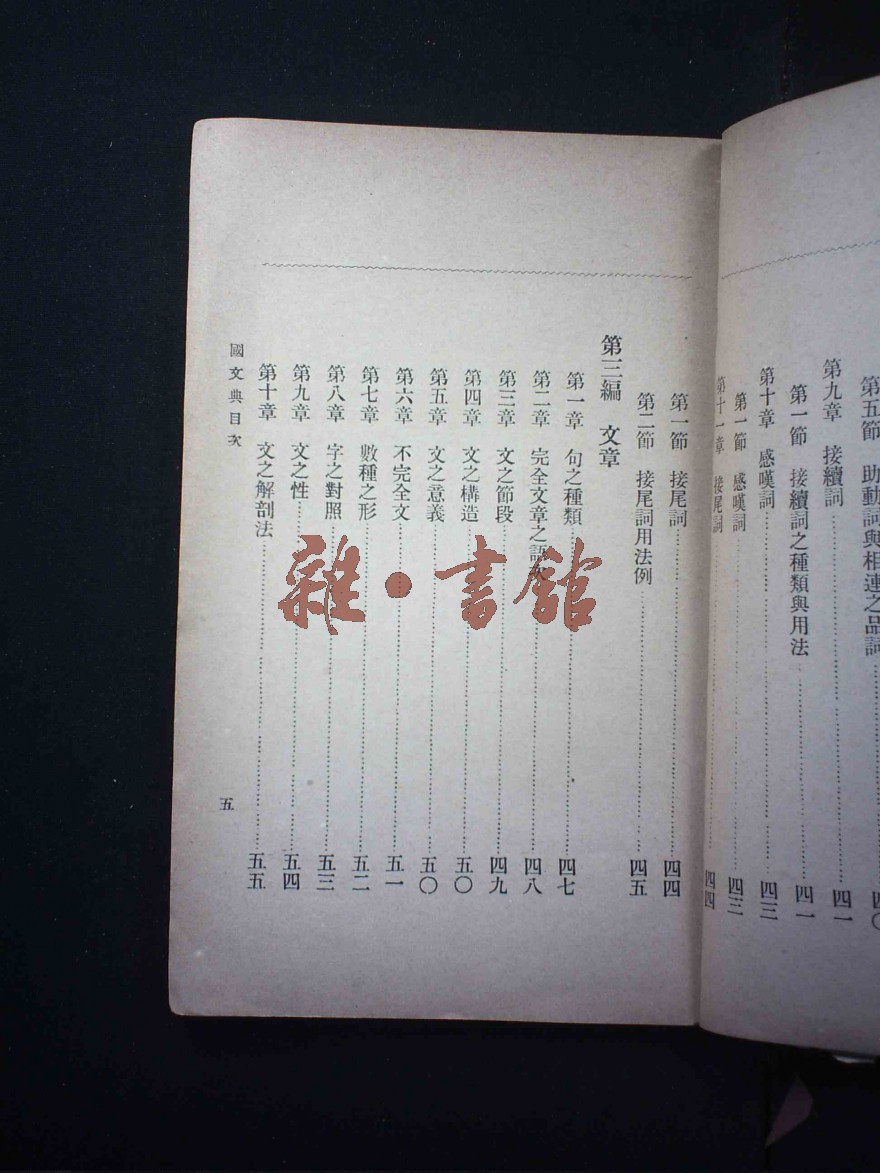 第五節 助動詞與相連之品詞 四〇
第九章 接續詞 四一
第一節 接續詞之種類與用法 四一
第十章 感嘆詞 四三
第一節 感嘆詞 四三
第十一章 接尾詞 四四
第一節 接尾詞 四四
第二節 接尾詞用法例 四五
第三編 文章
第一章 句之種類 四七
第二章 完全文章之語 四八
第三章 文之節段 四九
第四章 文之構造 五〇
第五章 文之意義 五〇
第六章 不完全文 五一
第七章 數種之形 五二
第八章 字之對照 五三
第九章 文之性 五四
第十章 文之解剖法 五五
國文典目次
五
雜·書館